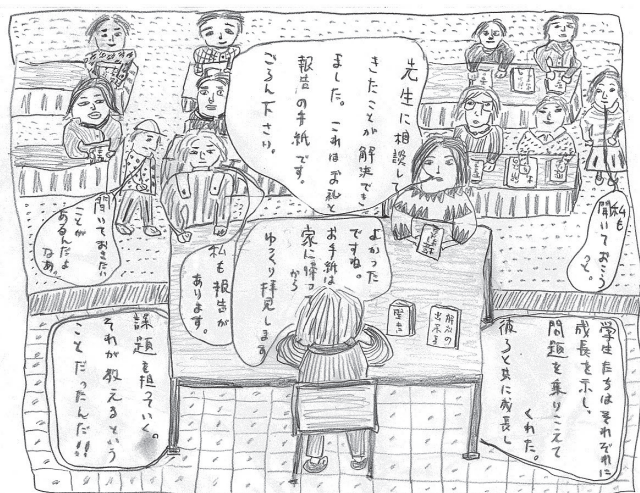 先生に相談して
きたことが解決でき
ました。これはお礼と
報告の手紙です。
ごろん下さい。
私も
聞いておこう
よかった
ですね。
お手紙は
家に帰っ
から
ゆっくり拝見します
私も報告が
あります。
聞いておきたい
ことが
あるんだよ
なあ。
聖書
学生たちはそれぞれに
成長を示し、
問題を乗りこえて
くれた。
彼らと共に成長し
課題を担っていく。
それが教えるという
ことだったんだ!!